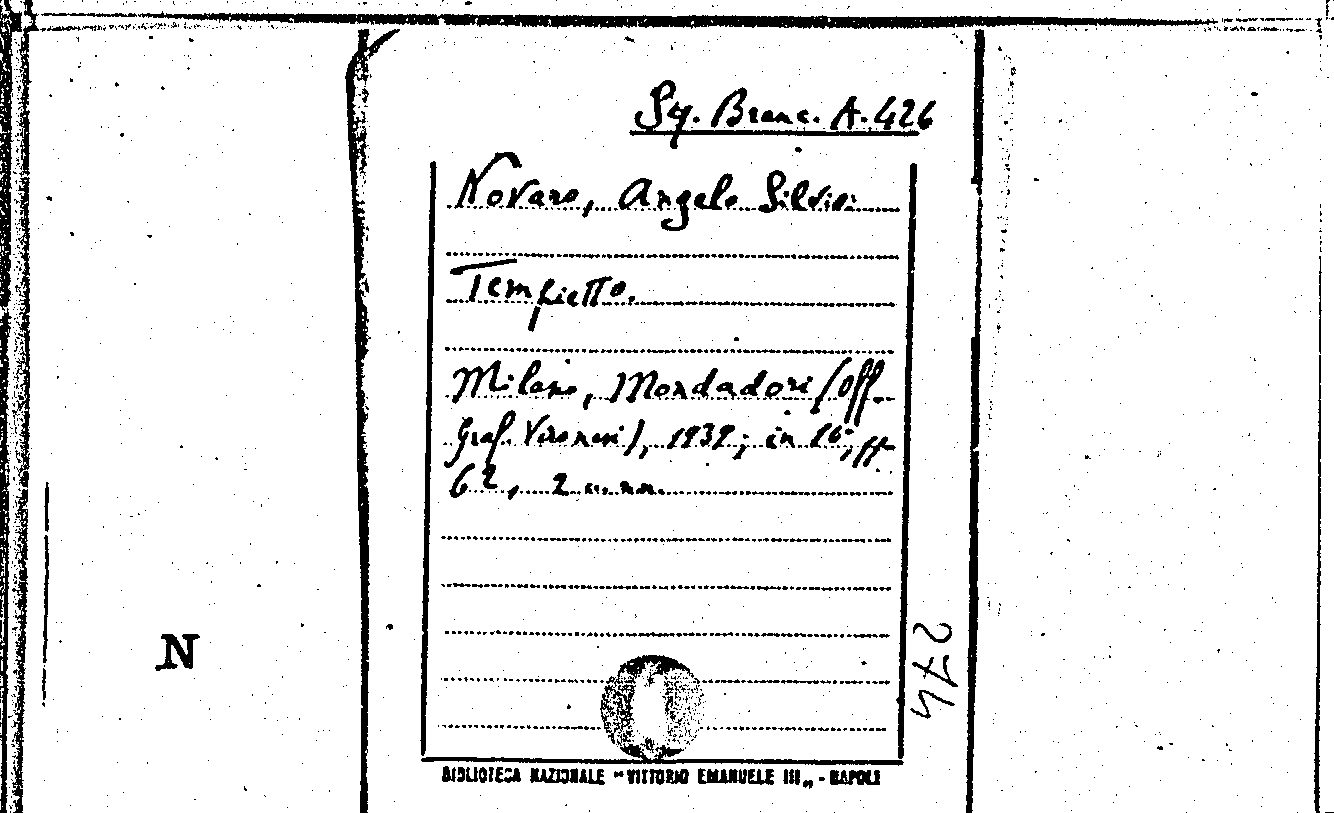 Sq. Branc. A. 426
Novaro, Angelo Silvio.
Tempietto.
Milano, Mondadori (Off.
Graf. Veronesi), 1939; in 16°, pp.
62, 2 c. nn.
N
274
BIBLIOTECA NAZIONALE "VITTORIO EMANUELE III„ - NAPOLI